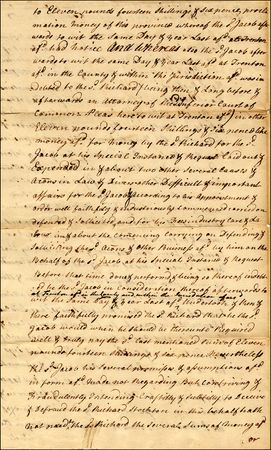 to Eleven pounds fourteen Shillings & Six pence, proclamation
money of this province whereof the sd Jacob afterwards
to wit the Same Day & Year Last afsd at Trenton
afsd had notice And whereas also the sd Jacob afterwards
to wit the same Day & Year Last afsd at Trenton
afsd in the County & within the Jurisdiction afsd was indebted
to the sd Richard he being then & Long before &
afterwards an Attorney of the Court of
Common pleas here to wit at Trenton afsd in other
Eleven pounds fourteen Shillings & Six pence like
money afsd for money by the sd Richard for the sd
Jacob at his special Instance & Request Laid out &
Expended in & about two other Several Causes &
Actions in Law & Divers other Difficult & important
affairs for the sd Jacob according to his appointment &
with faith fully & Industriously
defended & Solicited and for his pains industry Care &
in & about the commencing carrying on Defending &
Solliciting the sd Actions & other Business by him on the
Behalf of the sd Jacob at his special Instance & Request
Before that time done & performed & being so thereof indebted
he the sd Jacob in Consideration thereof afterwards to
wit the Same Day & Year Last afsd undertook & then &
there faithfully promised the sd Richard that he the sd
Jacob would when he should be thereunto Required
well & truly pay the sd Last mentioned Sum of Eleven
pounds fourteen Shillings & Six pence. Nevertheless
the sd Jacob his several promises & assumptions afsd
in form afsd made not Regarding But Contriving &
fraudulently Intending Craftily & Subtilly to Deceive
& Defraud the sd Richard Stockton in this behalf hath
not paid the sd Richard the Several Sums of money afsd
or